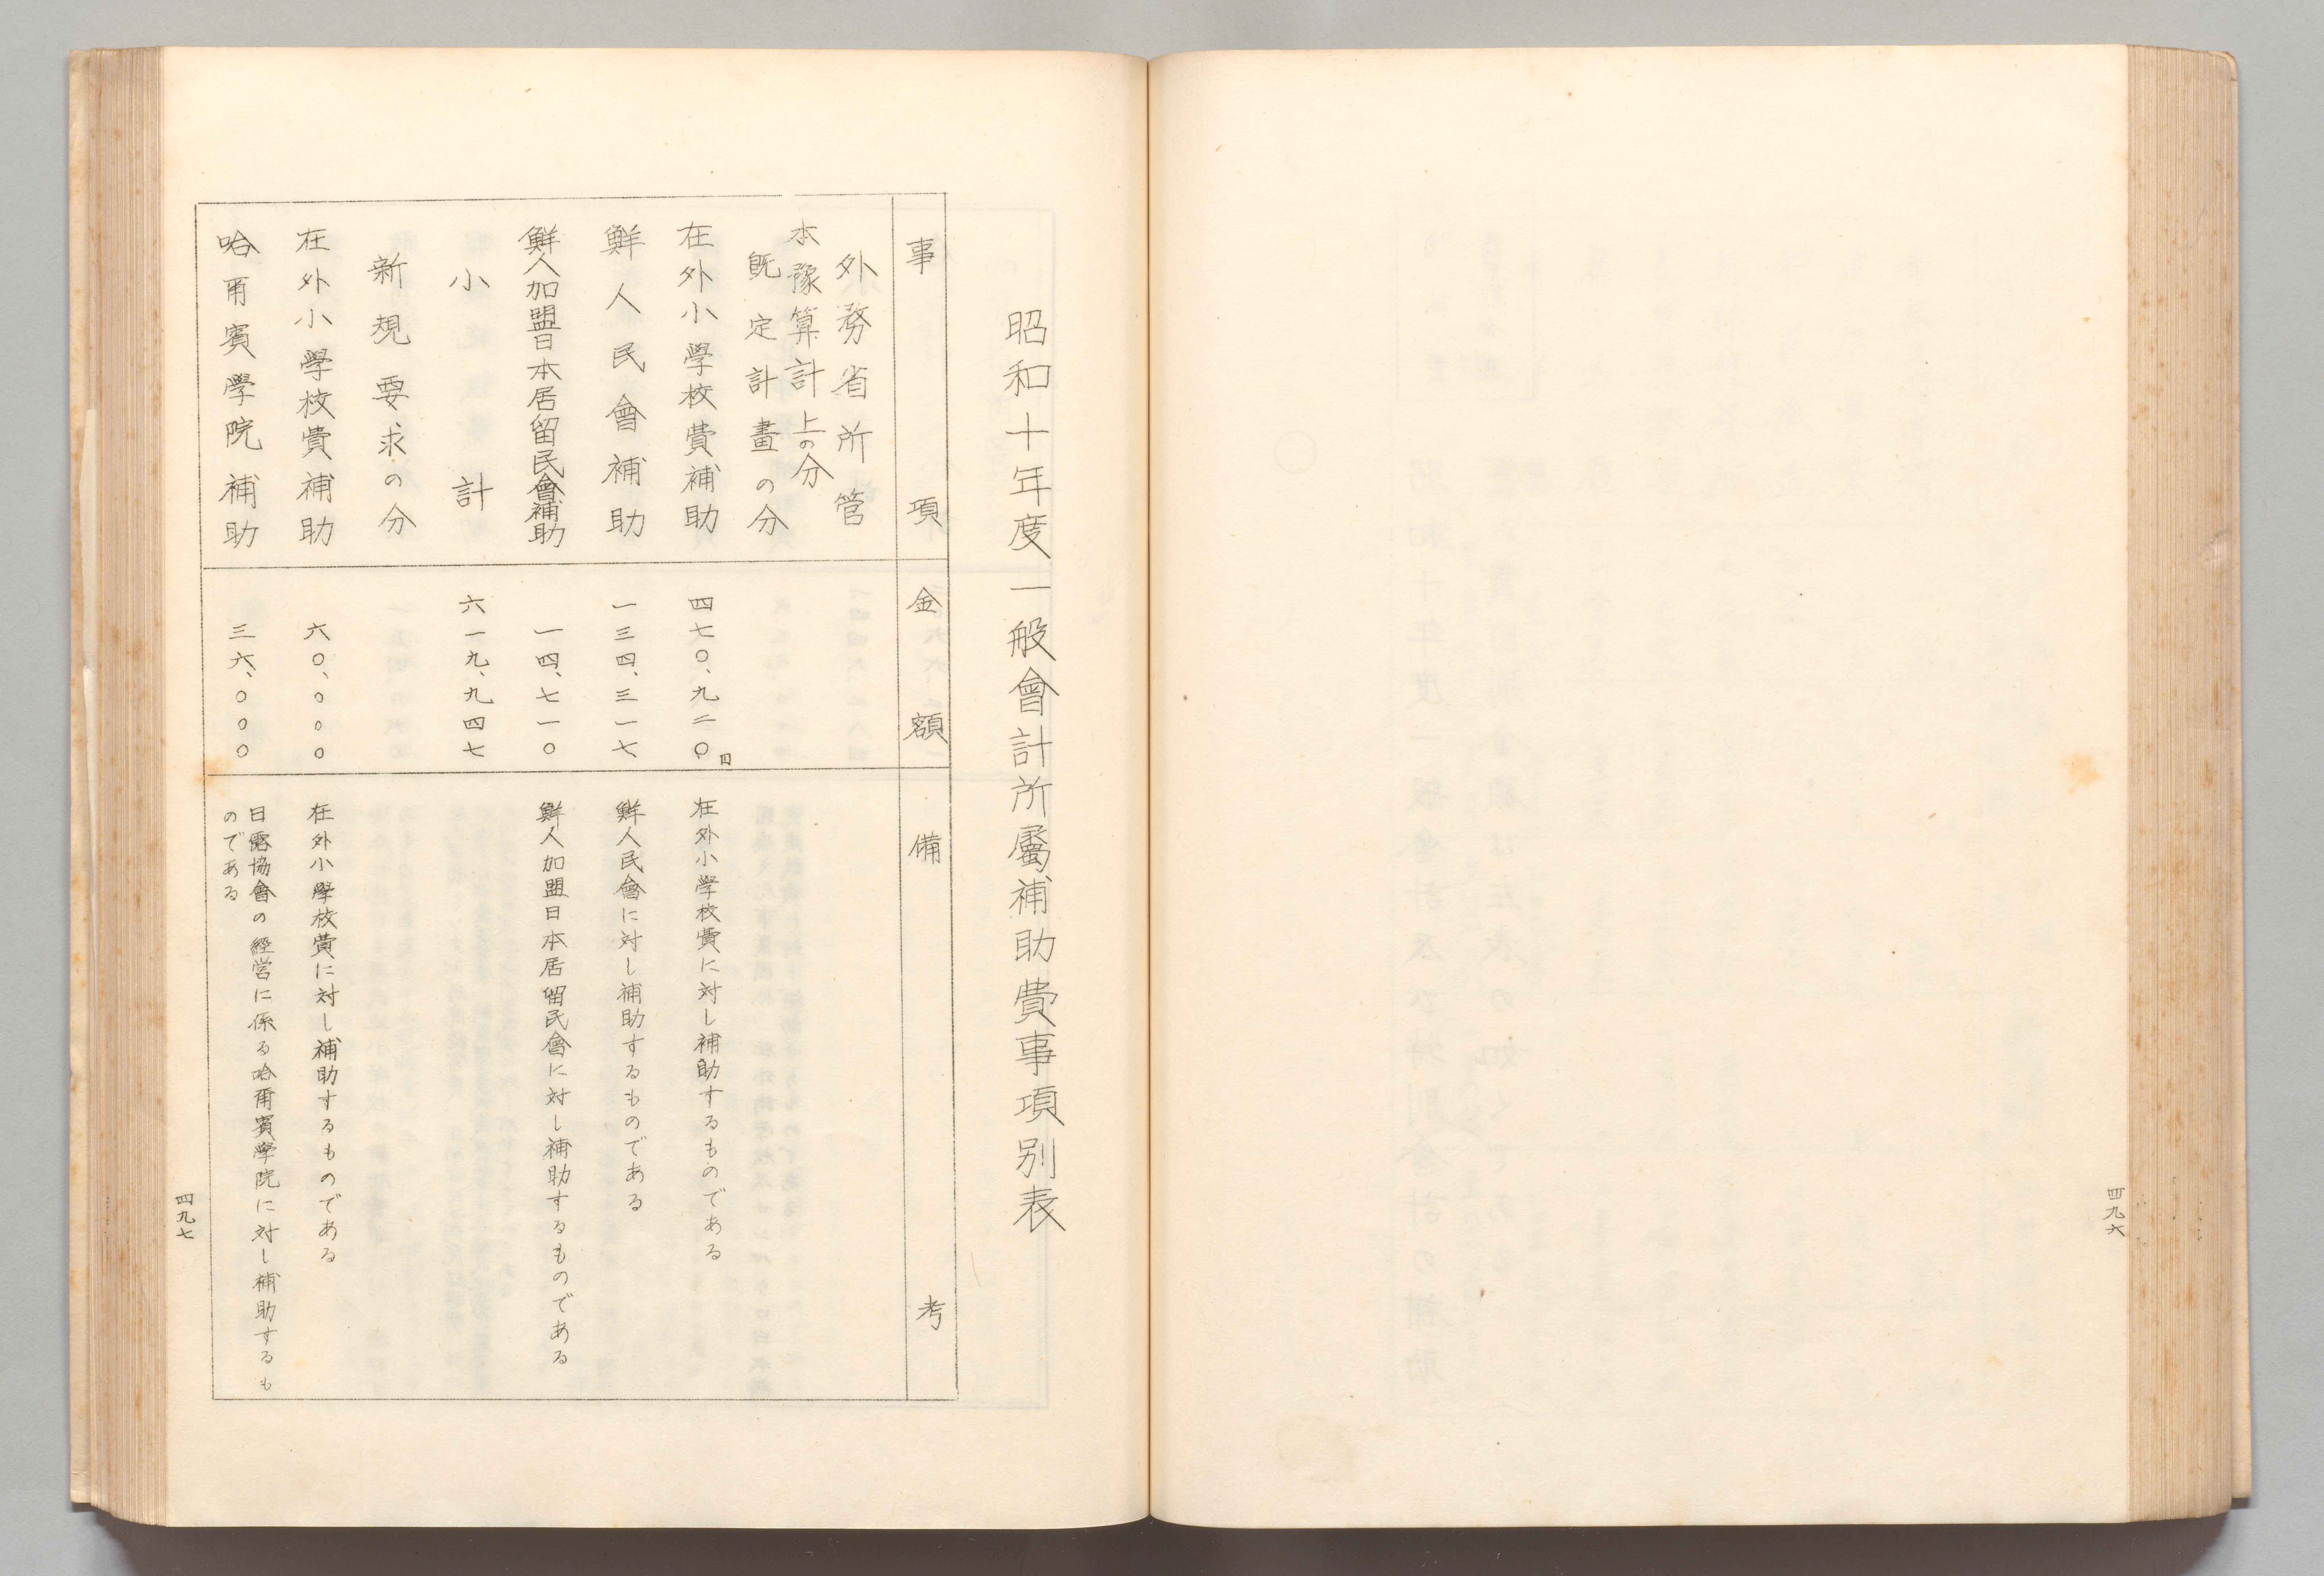 四九六
昭和十年度一般會計所屬補助費事項別表
事項
金額
備考
外務省所管
本豫算計上の分
既定計畫の分
在外小學校費補助
四七〇、九二〇
円
在外小學校費に対し補助するものである
鮮人民會補助
一三四、三一七
鮮人民會に対し補助するものである
鮮人加盟日本居留民會補助
一四、七一〇
鮮人加盟日本居留民會に対し補助するものである
小計
六一九、九四七
新規要求の分
在外小學校費補助
六〇、〇〇〇
在外小學校費に対し補助するものである
哈爾賓學院補助
三六、〇〇〇
日露協會の経営に係る哈爾賓學院に対し補助するも
のである
四九七